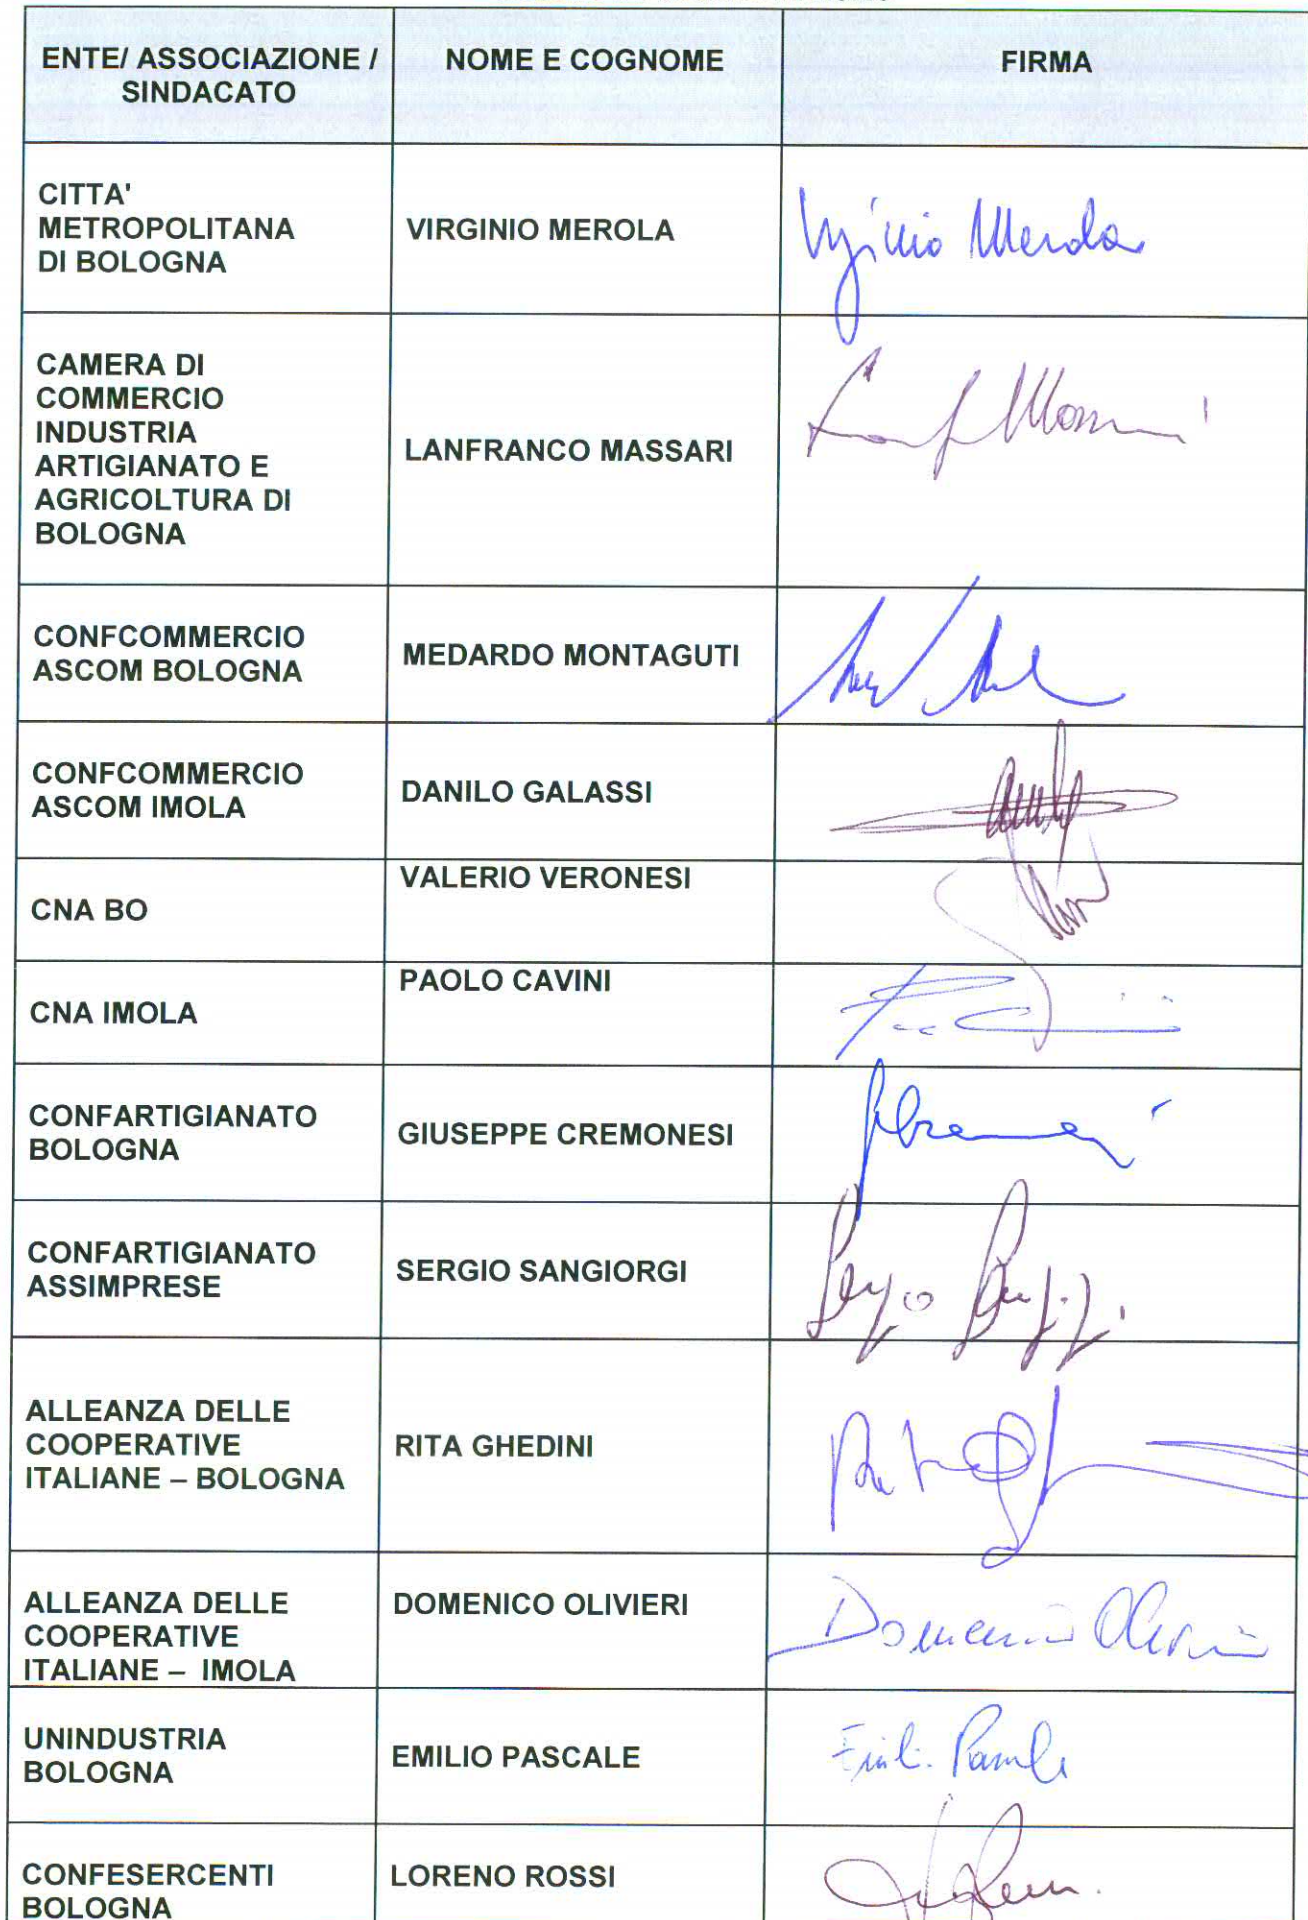 ENTE/ ASSOCIAZIONE /
SINDACATO
NOME E COGNOME
FIRMA
CITTA'
METROPOLITANA
DI BOLOGNA
VIRGINIO MEROLA
Virginio Merola
CAMERA DI
COMMERCIO
INDUSTRIA
ARTIGIANATO E
AGRICOLTURA DI
BOLOGNA
LANFRANCO MASSARI
CONFCOMMERCIO
ASCOM BOLOGNA
MEDARDO MONTAGUTI
CONFCOMMERCIO
ASCOM IMOLA
DANILO GALASSI
CNA BO
VALERIO VERONESI
CNA IMOLA
PAOLO CAVINI
CONFARTIGIANATO
BOLOGNA
GIUSEPPE CREMONESI
CONFARTIGIANATO
ASSIMPRESE
SERGIO SANGIORGI
ALLEANZA DELLE
COOPERATIVE
ITALIANE – BOLOGNA
RITA GHEDINI
ALLEANZA DELLE
COOPERATIVE
ITALIANE – IMOLA
DOMENICO OLIVIERI
Domenico Olivieri
UNINDUSTRIA
BOLOGNA
EMILIO PASCALE
Emilio Pascale
CONFESERCENTI
BOLOGNA
LORENO ROSSI